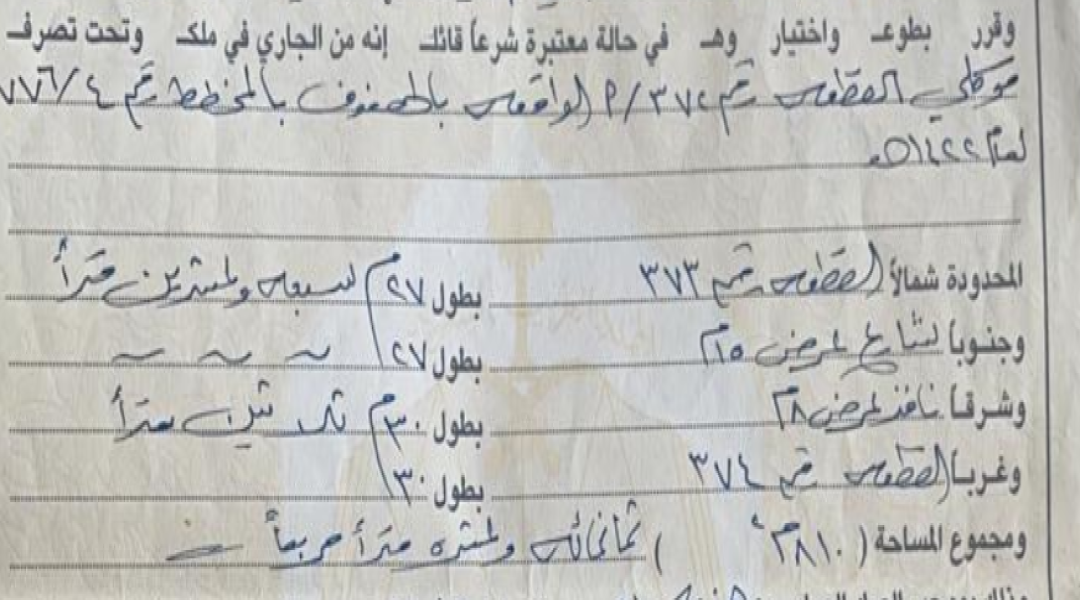 وقرر بطوعـ واختيار وهـ في حالة معتبرة شرعاً قائلـ إنه من الجاري في ملكـ وتحت تصرفـ
موكلي القطعه رقم ٣٧٢/م الواقعه بالهفوف بالمخطط رقم ٧٧٦/٤
لعام ١٤٢٢هـ.
المحدودة شمالاً القطعه رقم ٣٧٣ بطول ٢٧م سبعه وعشرين متراً
وجنوباً شارع عرض ١٥م بطول ٢٧م ~ ~ ~
وشرقاً نافذ عرض ٨م بطول ٣٠م ثلاثين متراً
وغرباً القطعه رقم ٣٧٤ بطول ٣٠م
ومجموع المساحة (٨١٠م٢) ثمانمائه وعشره متراً مربعاً